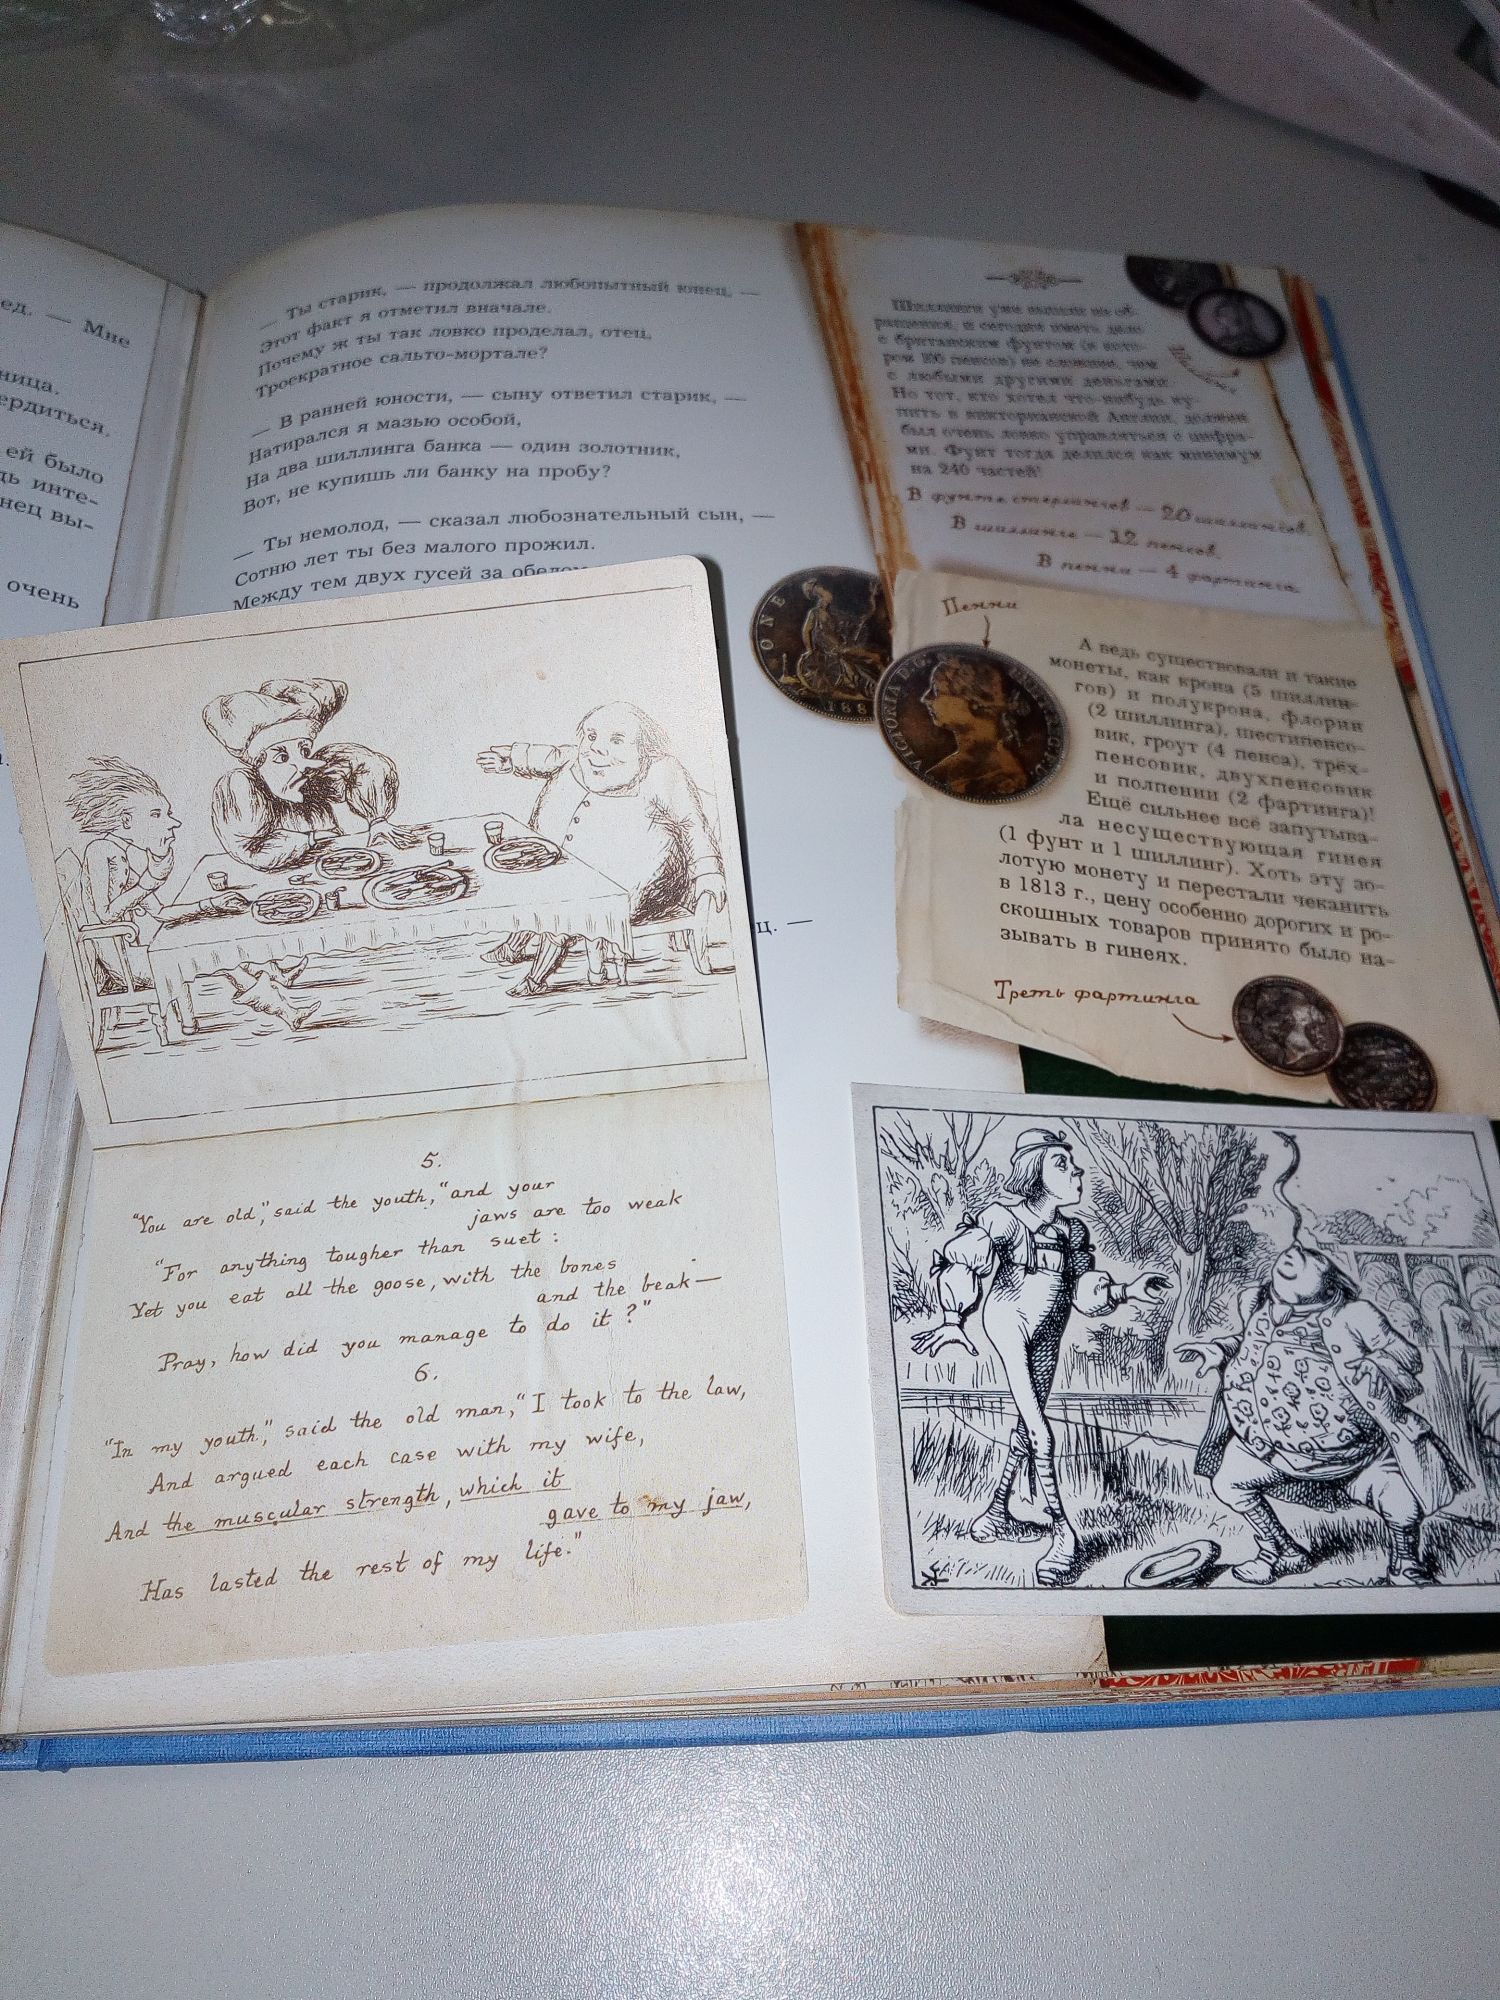 ед. — Мне
ница.
ердиться.
ей было
дь инте-
нец вы-
очень
— Ты старик, — продолжал любопытный юнец, —
Этот факт я отметил вначале.
Почему ж ты так ловко проделал, отец,
Троекратное сальто-мортале?
— В ранней юности, — сыну ответил старик, —
Натирался я мазью особой,
На два шиллинга банка — один золотник,
Вот, не купишь ли банку на пробу?
— Ты немолод, — сказал любознательный сын, —
Сотню лет ты без малого прожил.
Между тем двух гусей за обедом
ц. —
5.
"You are old," said the youth, "and your
jaws are too weak
"For anything tougher than suet:
Yet you eat all the goose, with the bones
and the beak—
Pray, how did you manage to do it?"
6.
"In my youth," said the old man, "I took to the law,
And argued each case with my wife,
And the muscular strength, which it
gave to my jaw,
Has lasted the rest of my life."
Шиллинги уже вышли из об-
ращения, и сегодня иметь дело
с британским фунтом (в кото-
ром 100 пенсов) не сложнее, чем
с любыми другими деньгами.
Но тот, кто хотел что-нибудь ку-
пить в викторианской Англии, должен
был очень ловко управляться с цифра-
ми. Фунт тогда делился как минимум
на 240 частей!
В фунте стерлингов — 20 шиллингов.
В шиллинге — 12 пенсов.
В пенни — 4 фартинга.
Пенни
ONE
188
VICTORIA D:G:
BRITT:REG:F:D:
А ведь существовали и такие
монеты, как крона (5 шиллин-
гов) и полукрона, флорин
(2 шиллинга), шестипенсо-
вик, гроут (4 пенса), трёх-
пенсовик, двухпенсовик
и полпенни (2 фартинга)!
Ещё сильнее всё запутыва-
ла несуществующая гинея
(1 фунт и 1 шиллинг). Хоть эту зо-
лотую монету и перестали чеканить
в 1813 г., цену особенно дорогих и ро-
скошных товаров принято было на-
зывать в гинеях.
Треть фартинга